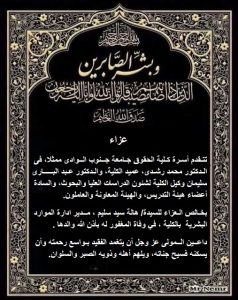 وبشر الصابرين
الذين إذا أصابتهم مصيبة قالوا إنا لله وإنا إليه راجعون
صدق الله العظيم
عزاء
تتقدم أسرة كلية الحقوق جامعة جنوب الوادى ممثلا، فى
الدكتور محمد رشدى، عميد الكلية، والدكتور عبد البارى
سليمان وكيل الكلية لشئون الدراسات العليا والبحوث، والسادة
أعضاء هيئة التدريس، والهيئة المعاونة والعاملون.
بخالص العزاء للسيدة/ هالة سيد سليم ، مدير ادارة الموارد
البشرية بالكلية ، في وفاة المغفور له بأذن الله والدها .
داعين المولى عز وجل أن يتغمد الفقيد بواسع رحمته وأن
يسكنه فسيح جناته، ويلهم أهله وذويه الصبر والسلوان.
Mr.Nemr